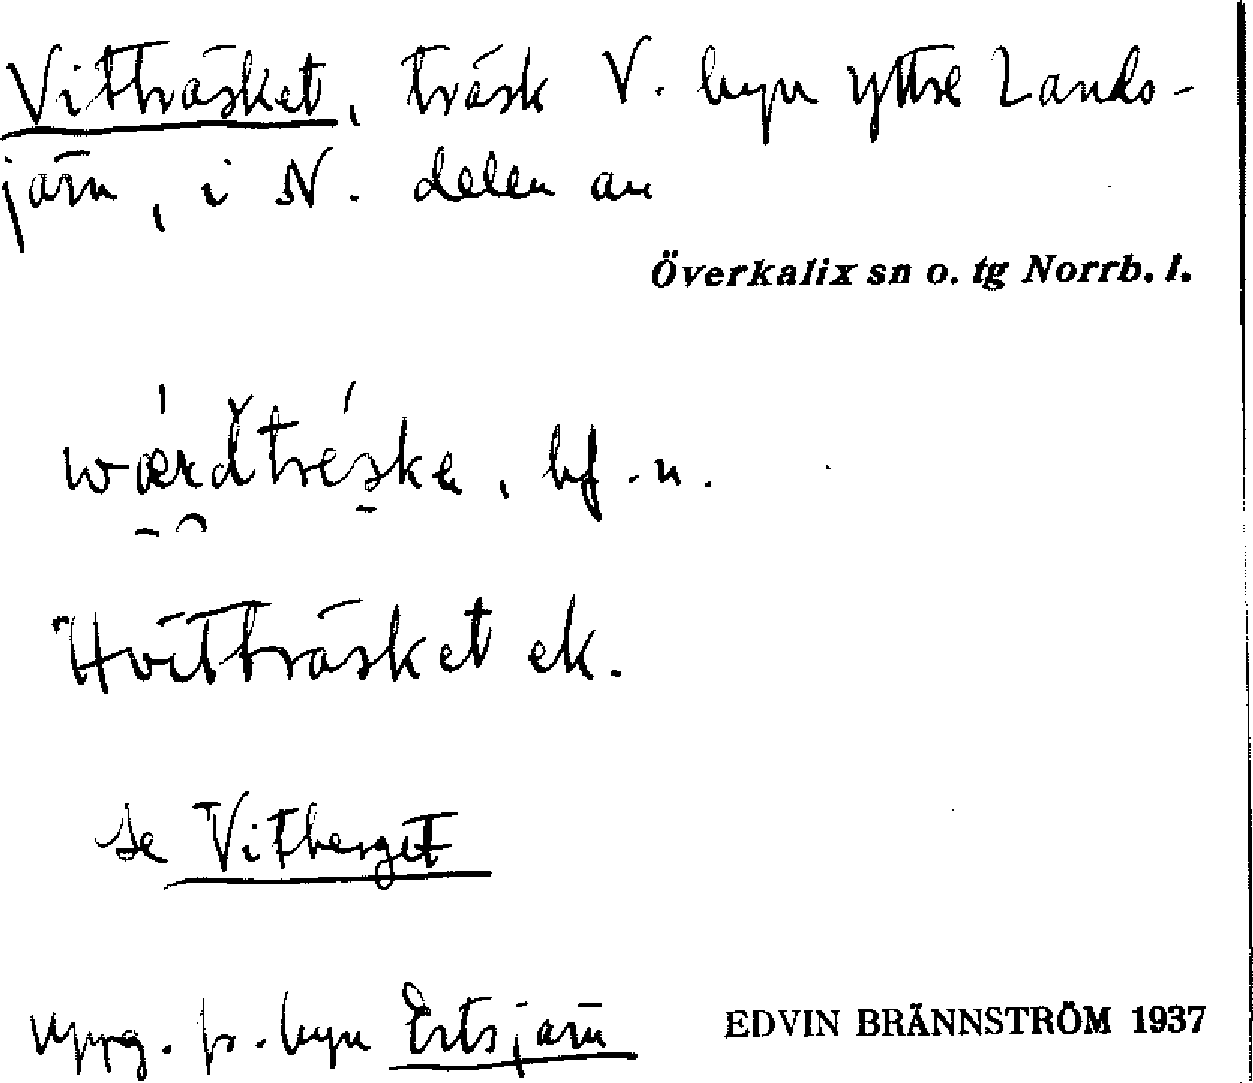 Vitträsket, träsk V. byn yttre Lands-
järv, i N. delen av
Överkalix sn o. tg Norrb. l.
bf. n.
"Hvitträsket ek.
se Vitberget
uppg. fr. byn Ertsjärv
EDVIN BRÄNNSTRÖM 1937